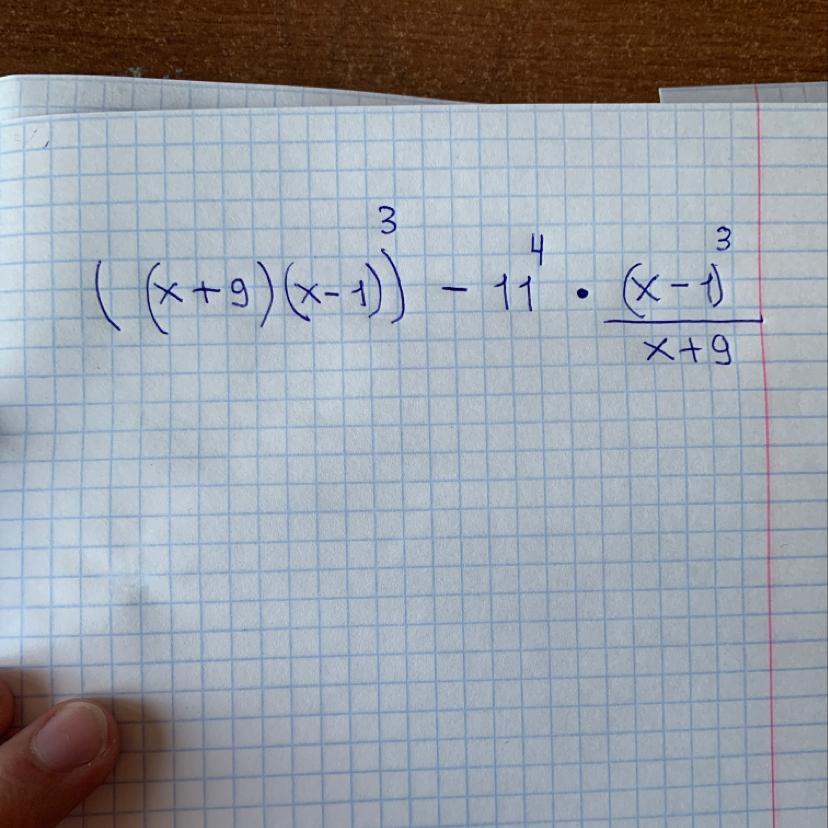 ((x+9)(x-1))^3 - 11^4 · (x-1)^3/(x+9)